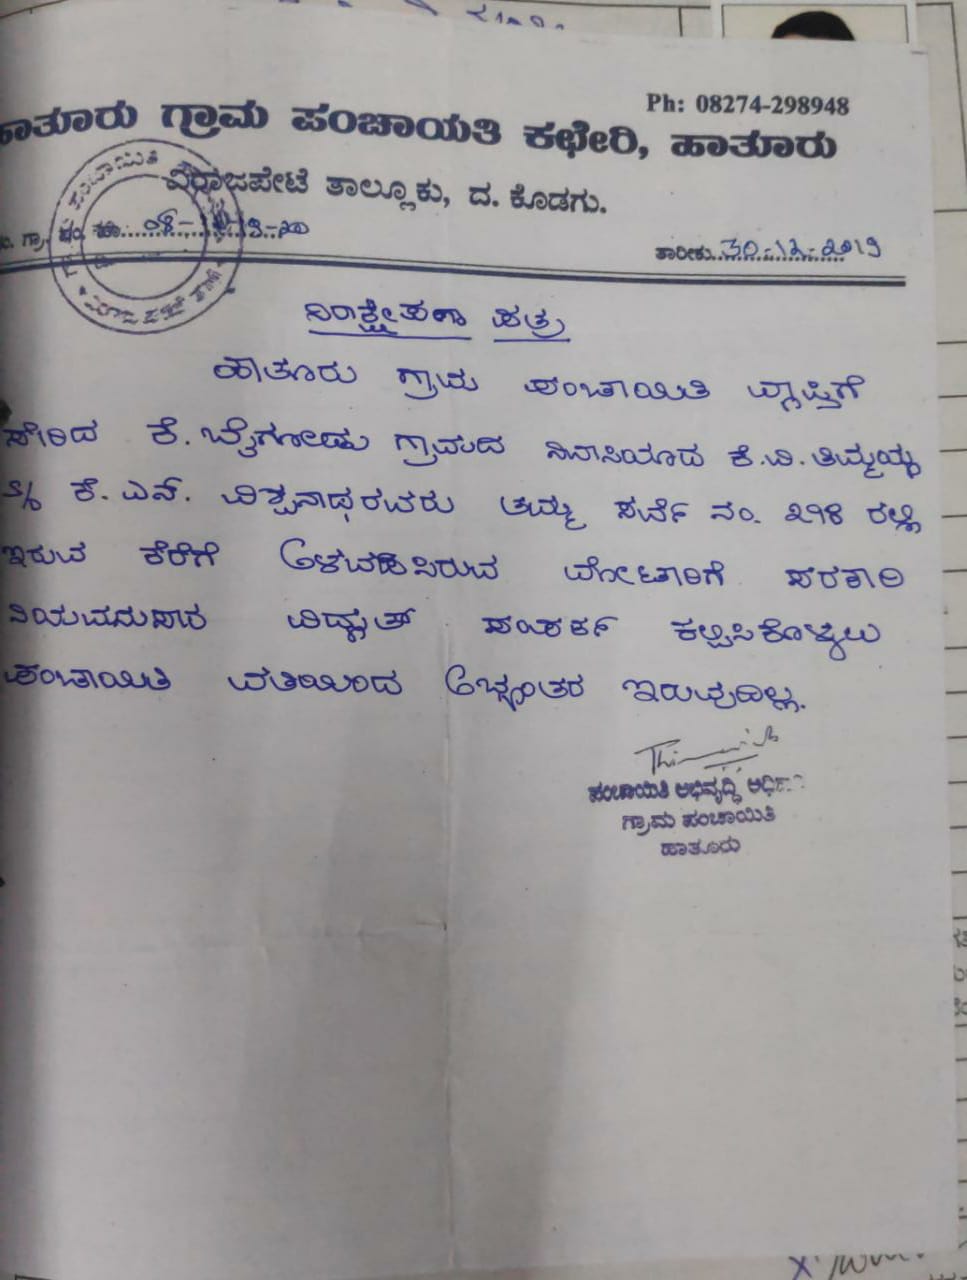 Ph: 08274-298948
ಹಾತೂರು ಗ್ರಾಮ ಪಂಚಾಯತಿ ಕಛೇರಿ, ಹಾತೂರು
ವಿರಾಜಪೇಟೆ ತಾಲ್ಲೂಕು, ದ. ಕೊಡಗು.
ತಾರೀಕು 30-12-2019
ನಿರಾಕ್ಷೇಪಣಾ ಪತ್ರ
ಹಾತೂರು ಗ್ರಾಮ ಪಂಚಾಯಿತಿ ವ್ಯಾಪ್ತಿಗೆ
ಸೇರಿದ ಕೆ. ಬೈಗೋಡು ಗ್ರಾಮದ ನಿವಾಸಿಯಾದ ಕೆ.ವಿ. ತಿಮ್ಮಯ್ಯ
S/o ಕೆ. ಎನ್. ವಿಶ್ವನಾಥರವರು ತಮ್ಮ ಸರ್ವೆ ನಂ. ೩೧೪ ರಲ್ಲಿ
ಇರುವ ಕೆರೆಗೆ ಅಳವಡಿಸಿರುವ ಮೋಟಾರಿಗೆ ಸರಕಾರಿ
ನಿಯಮನುಸಾರ ವಿದ್ಯುತ್ ಸಂಪರ್ಕ ಕಲ್ಪಿಸಿಕೊಳ್ಳಲು
ಪಂಚಾಯಿತಿ ವತಿಯಿಂದ ಅಭ್ಯಂತರ ಇರುವುದಿಲ್ಲ.
ಪಂಚಾಯಿತಿ ಅಭಿವೃದ್ಧಿ
ಗ್ರಾಮ ಪಂಚಾಯಿತಿ
ಹಾತೂರು